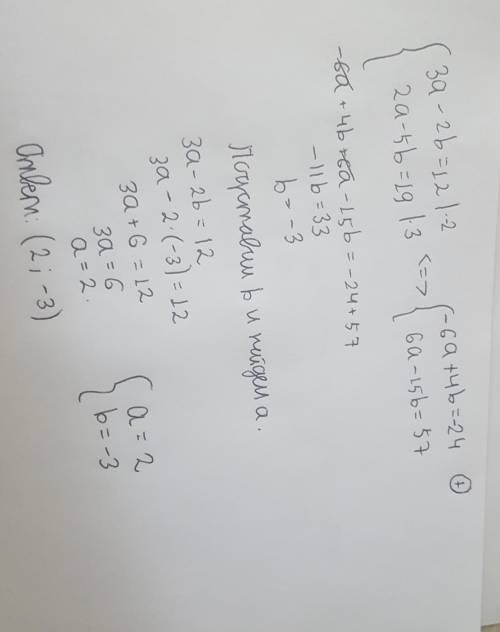 { 3a - 2b = 12 |·2 <=> { -6a + 4b = -24
2a - 5b = 19 |·3 6a - 15b = 57 (+)
-6a + 4b + 6a - 15b = -24 + 57
-11b = 33
b = -3
Подставим b и найдем a.
3a - 2b = 12
3a - 2·(-3) = 12
3a + 6 = 12
3a = 6
a = 2.
{ a = 2
b = -3
Ответ: (2 ; -3)